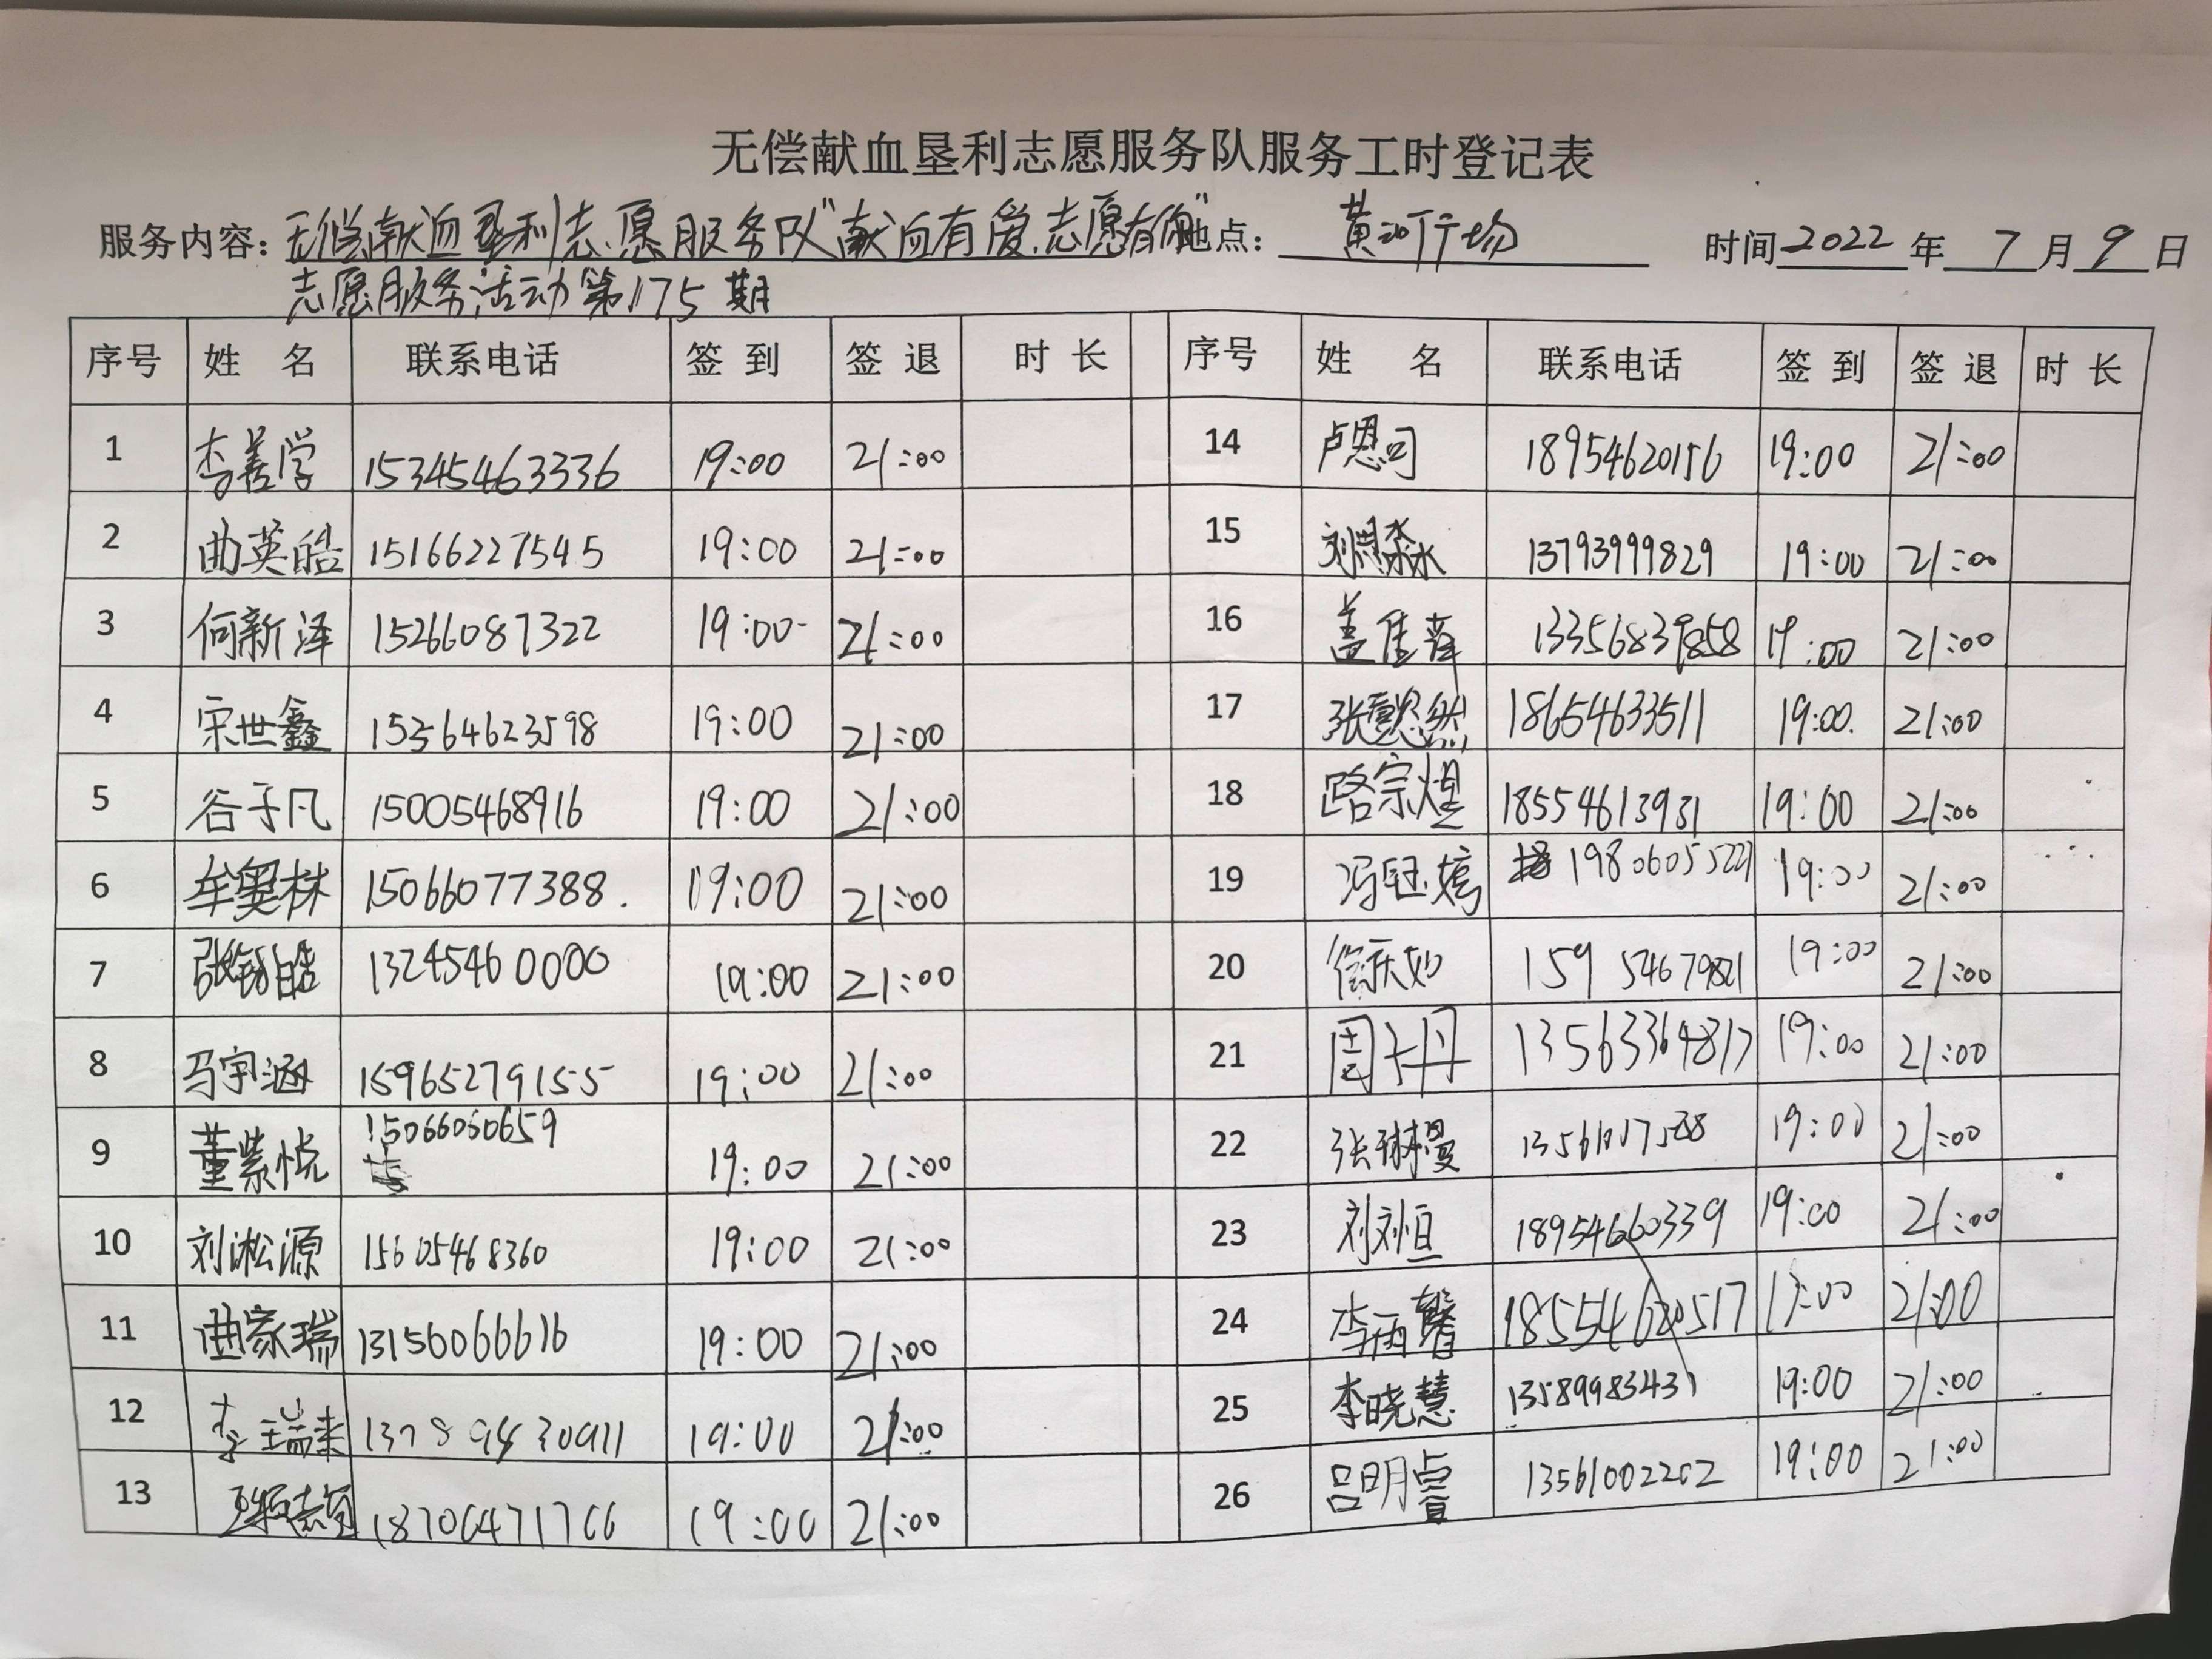 无偿献血垦利志愿服务队服务工时登记表
服务内容：无偿献血垦利志愿服务队"献血有爱.志愿有你" 地点：黄河广场 时间 2022 年 7 月 9 日
志愿服务活动第175期
序号 姓 名 联系电话 签 到 签 退 时 长 序号 姓 名 联系电话 签 到 签 退 时 长
1 李善学 15345463336 19:00 21:00 14 卢恩司 18954620156 19:00 21:00
2 曲英皓 15166227545 19:00 21:00 15 刘恩淼 13793999829 19:00 21:00
3 何新泽 15266087322 19:00 21:00 16 盖佳 13356839858 19:00 21:00
4 宋世鑫 15364623598 19:00 21:00 17 张懿然 18654633511 19:00 21:00
5 谷于凡 15005468916 19:00 21:00 18 路宗煜 18554613931 19:00 21:00
6 牟奥林 15066077388 19:00 21:00 19 冯钰婷 19:00 21:00
7 张皓 13245460000 19:00 21:00 20 19:00 21:00
8 马宇涵 15965279155 19:00 21:00 21 周丹 13563364817 19:00 21:00
9 董紫悦 15066060659 19:00 21:00 22 张琳曼 19:00 21:00
10 刘淞源 15605468360 19:00 21:00 23 刘刘恒 18954660339 19:00 21:00
11 曲家瑞 13156066616 19:00 21:00 24 李雨馨 18554620517 21:00
12 李瑞来 19:00 21:00 25 李晓慧 13589983431 19:00 21:00
13 18706471766 19:00 21:00 26 吕明萱 13561002202 19:00 21:00